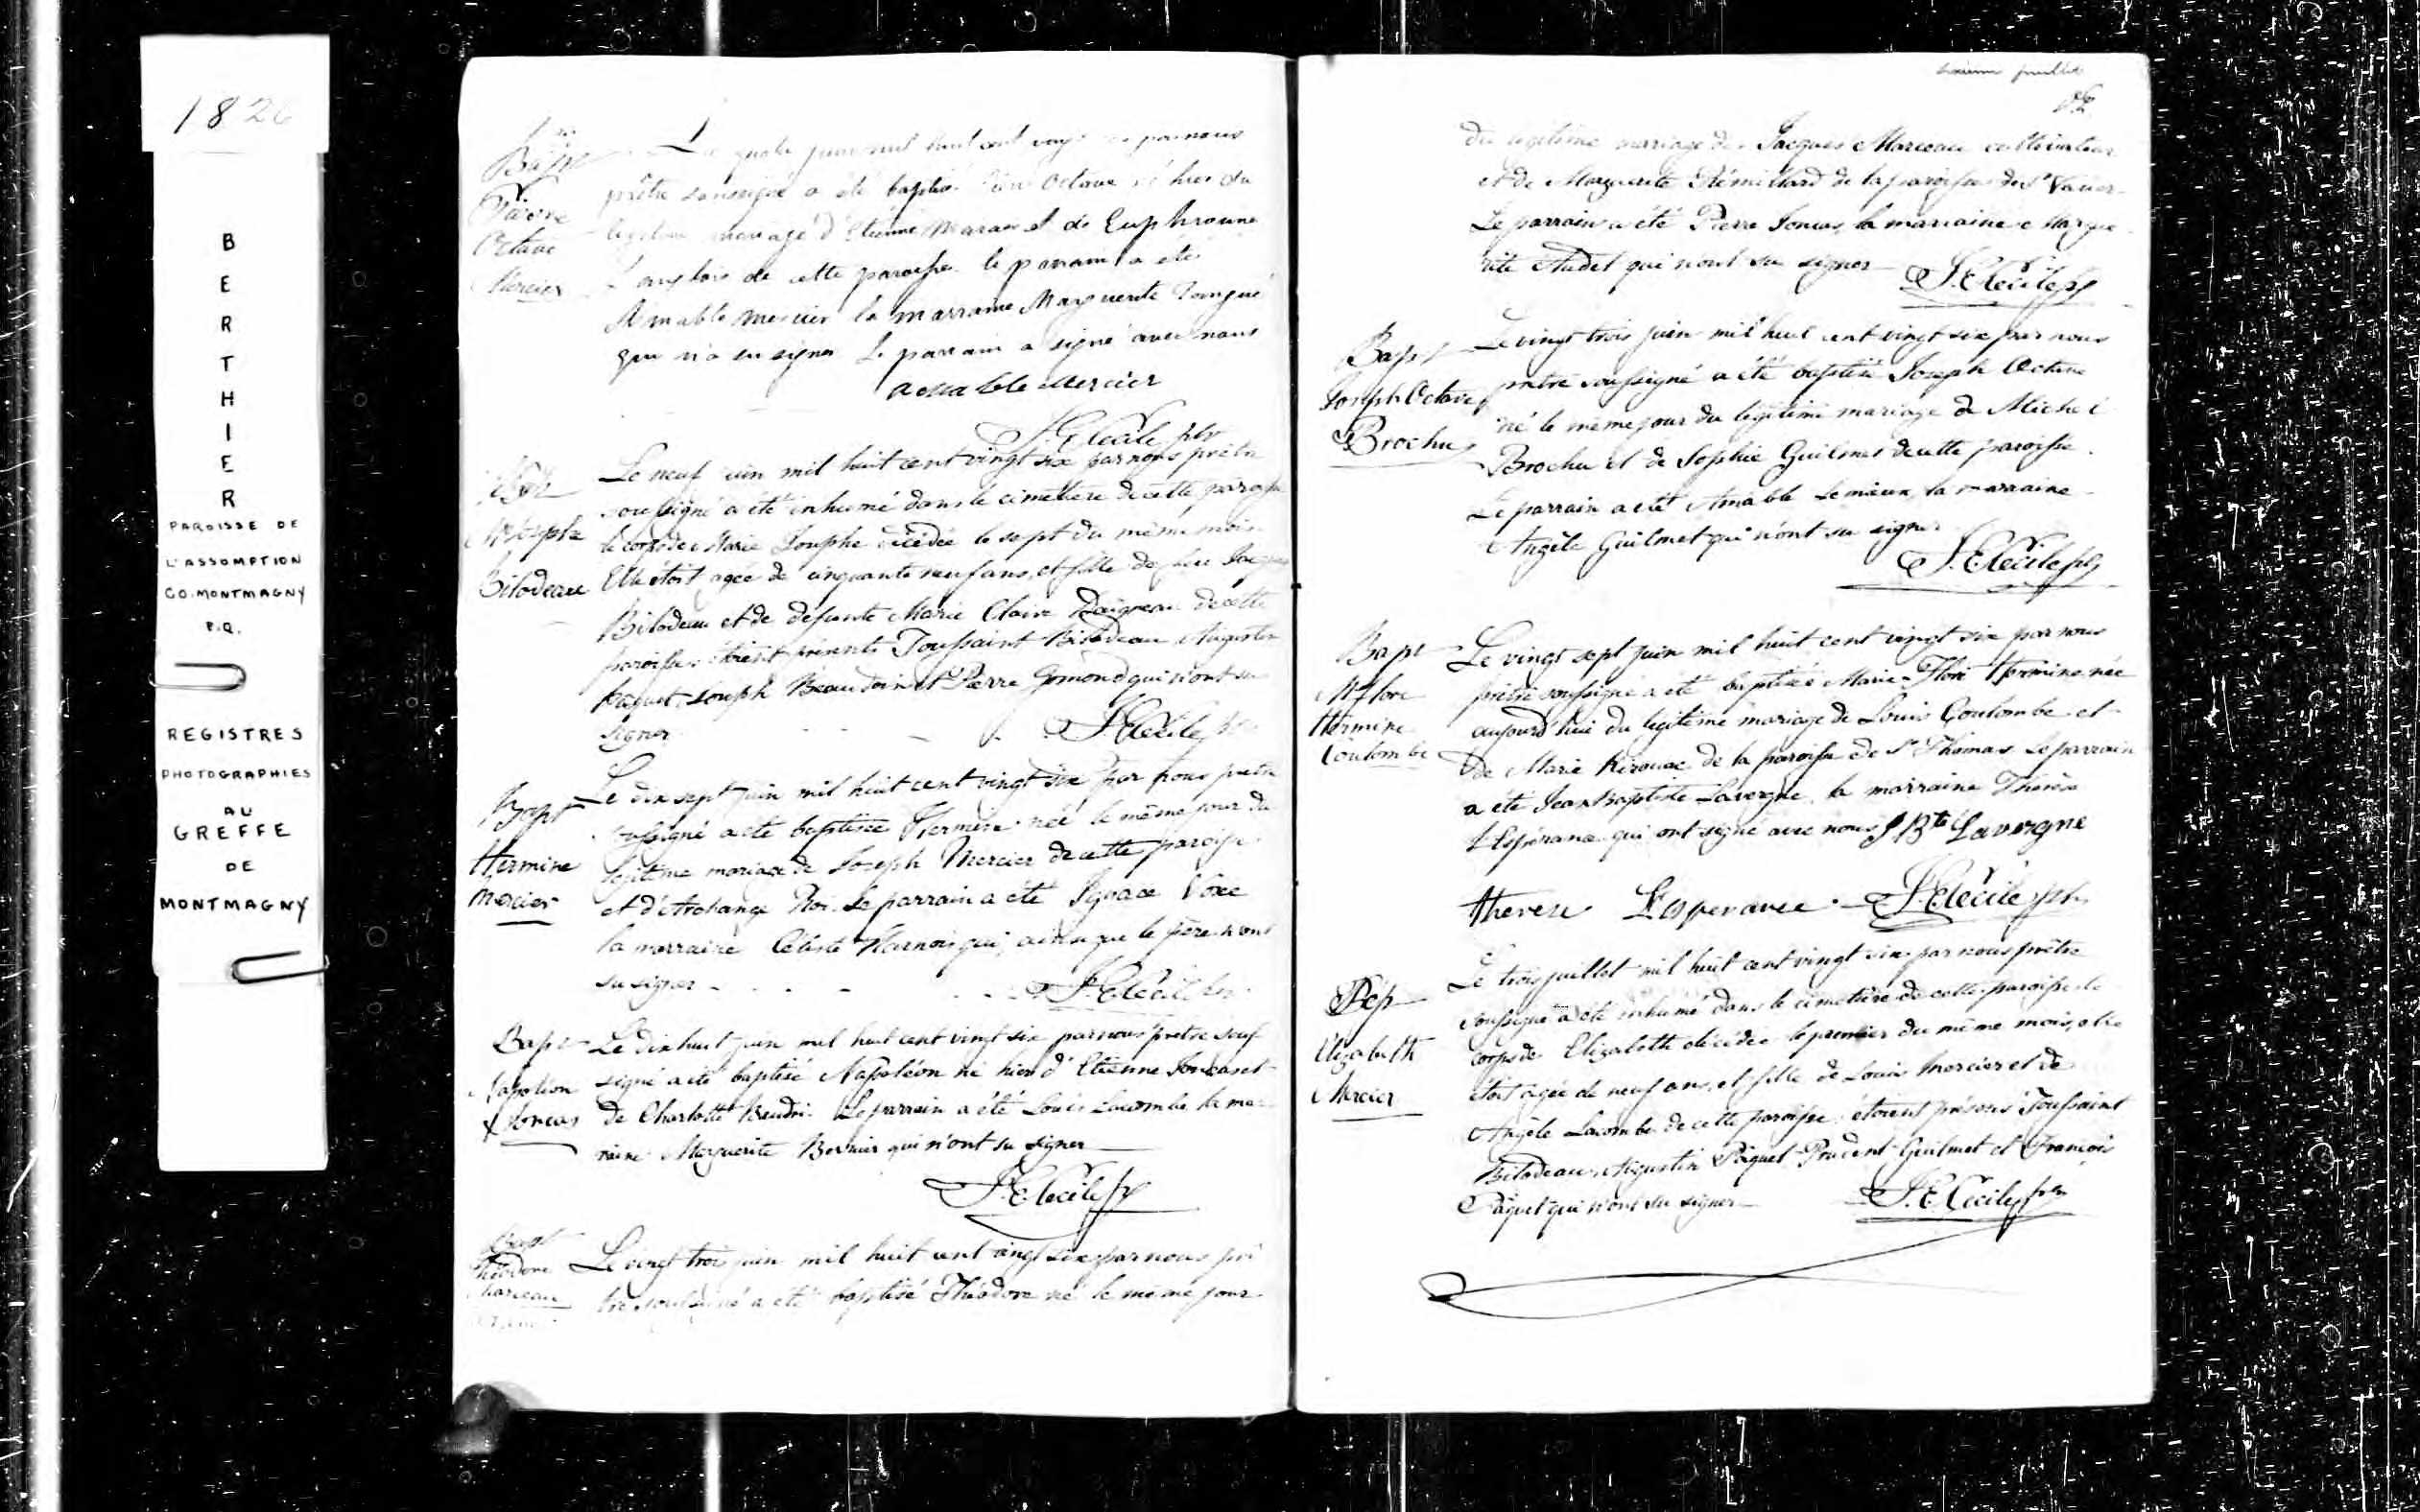 1826
B
E
R
T
H
I
E
R
PAROISSE DE
L'ASSOMPTION
CO. MONTMAGNY
P.Q.
REGISTRES
PHOTOGRAPHIES
AU
GREFFE
DE
MONTMAGNY
Bapt
Pierre
Octave
Mercier
Le quatre juin mil huit cent vingt six par nous
prêtre soussigné a été baptisé Octave né hier du
légitime mariage d'Etienne et de Euphrosine
Langlois de cette paroisse le parrain a été
Amable Mercier la marraine Marguerite
qui n'a su signer Le parrain a signé avec nous
amable Mercier
J. E. Cécile ptr
M. Josephe
Bilodeau
Le neuf juin mil huit cent vingt six par nous prêtre
soussigné a été inhumé dans le cimetière de cette paroisse
le corps de Marie Josephe décédée le sept du même mois
Elle étoit agée de cinquante neuf ans, et fille de feu Jacques
Bilodeau et de défunte Marie Claire Daigneau de cette
paroisse étoient présents Toussaint Bilodeau Augustin
Paquet, Joseph Beaudoin et Pierre Gémond qui n'ont su
signer
J. E. Cécile
Bapt
Hermine
Mercier
Le dix sept juin mil huit cent vingt six par nous prêtre
soussigné a été baptisée Hermine née le même jour du
légitime mariage de Joseph Mercier de cette paroisse
et d'Archange Roi. Le parrain a été Ignace
la marraine Céleste Harnois qui, ainsi que le père n'ont
su signer
J. E. Cécile ptr
Bapt
Napoléon
Joncas
Le dix huit juin mil huit cent vingt six par nous prêtre sous
signé a été baptisé Napoléon né hier d'Etienne Joncas et
de Charlotte Beaudoin. Le parrain a été Louis Lacombe la mar
raine Marguerite Bernier qui n'ont su signer
J. E. Cécile ptr
Bapt
Théodore
Marceau
Le vingt trois juin mil huit cent vingt six par nous prê
tre soussigné a été baptisé Théodore né le même jour
feuillet
du légitime mariage de Jacques Marceau cultivateur
et de Marguerite Rémillard de la paroisse de St Vallier
Le parrain a été Pierre Joncas, la marraine Margue
rite Audet qui n'ont su signer
J. E. Cécile ptr
Bapt
Joseph Octave
Brochu
Le vingt trois juin mil huit cent vingt six par nous
prêtre soussigné a été baptisé Joseph Octave
né le même jour du légitime mariage de Michel
Brochu et de Sophie Guilmet de cette paroisse.
Le parrain a été Amable Lemieux, la marraine
Angèle Guilmet qui n'ont su signer
J. E. Cécile ptr
Bapt
M. Flore
Hermine
Coulombe
Le vingt sept juin mil huit cent vingt six par nous
prêtre soussigné a été baptisée Marie Flore Hermine née
aujourd'hui du légitime mariage de Louis Coulombe et
de Marie Kirouac de la paroisse de St Thomas Le parrain
a été Jean Baptiste Lavergne, la marraine Thérèse
L'Espérance qui ont signé avec nous J Bte Lavergne
therese Lesperance J. E. Cécile ptr
Sép
Elizabeth
Mercier
Le trois juillet mil huit cent vingt six par nous prêtre
soussigné a été inhumé dans le cimetière de cette paroisse le
corps de Elizabeth décédée le premier du même mois, elle
étoit agée de neuf ans, et fille de Louis Mercier et de
Angèle Lacombe de cette paroisse étoient présens Toussaint
Bilodeau, Augustin Paquet Prudent Guilmet et François
Paquet qui n'ont su signer
J. E. Cécile ptr